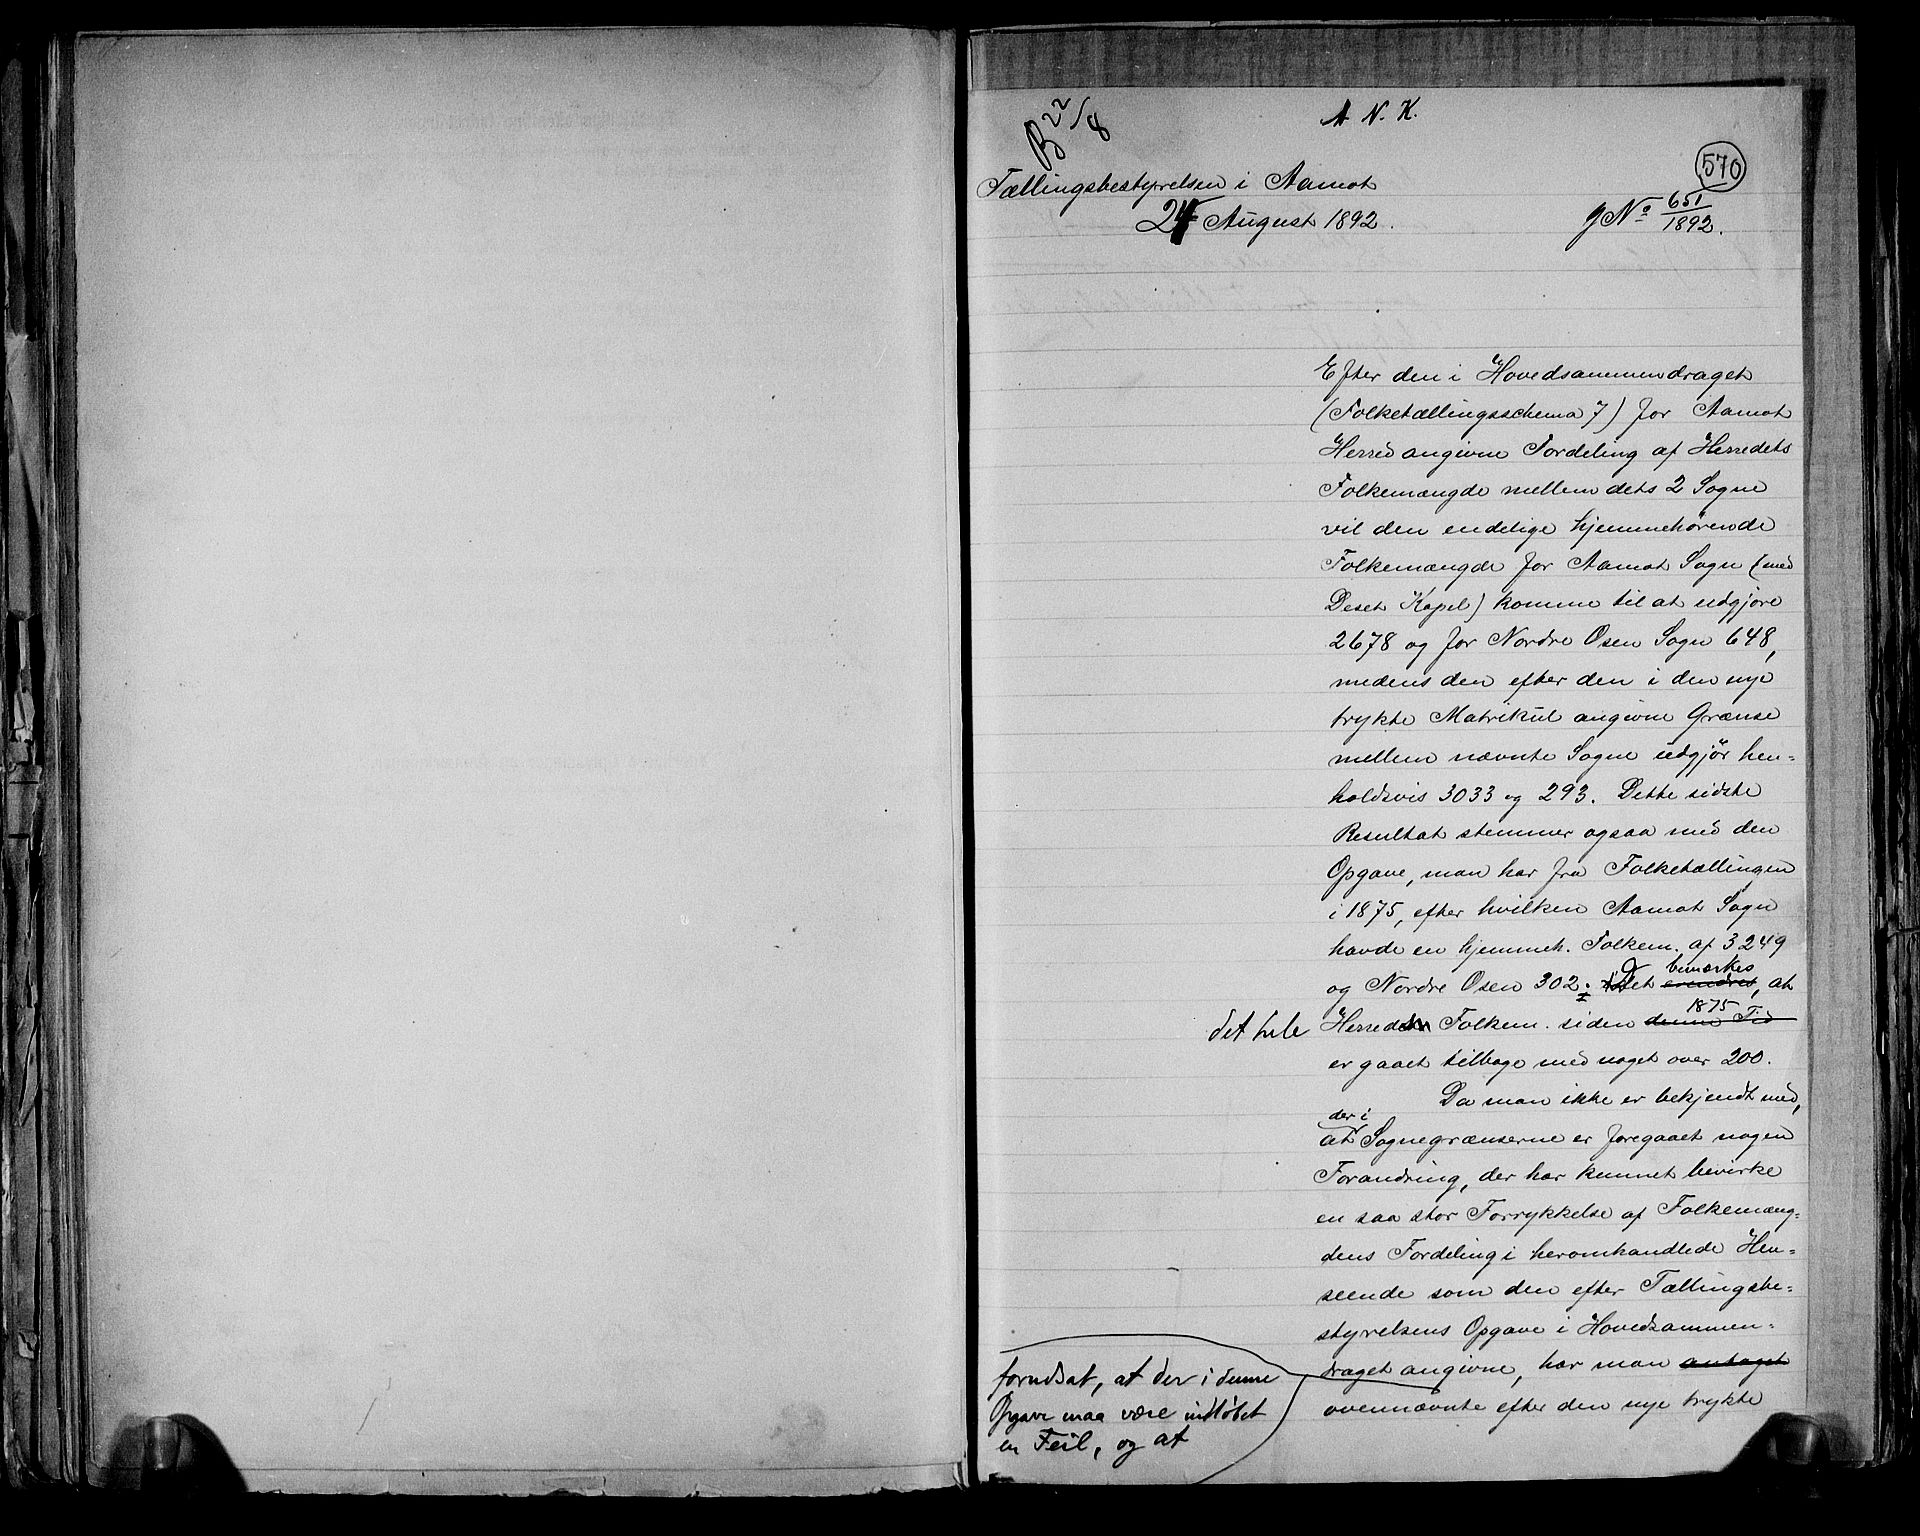 B 22/8
A N. K.
570
Tællingsbestyrelsen i Aamot
24 August 1892.
J No 651/1892.
Efter den i Hovedsammendraget
(Folketællingsschema 7) for Aamot
Herred angivne Fordeling af Herredets
Folkemængde mellem dets 2 Sogne
vil den endelige hjemmehørende
Folkemængde for Aamot Sogn (med
Deset Kapel) komme til at udgjøre
2678 og for Nordre Osen Sogn 648,
medens den efter den i den nye
trykte Matrikul angivne Grænse
mellem nævnte Sogne udgjør hen=
holdsvis 3033 og 293. Dette sidste
Resultat stemmer ogsaa med den
Opgave, man har fra Folketællingen
i 1875, efter hvilken Aamot Sogn
havde en hjemmeh. Folkem. af 3249
bemærkes
og Nordre Osen 302. Det, at
1875
det hele Herreds Folkem. siden denne Tid
er gaaet tilbage med noget over 200.
Da man ikke er bekjendt med,
der i
at Sognegrænserne er foregaaet nogen
Forandring, der har kunnet bevirke
en saa stor Forrykkelse af Folkemæng=
dens Fordeling i heromhandlede Hen=
seende som den efter Tællingsbe=
styrelsens Opgave i Hovedsammen=
draget angivne, har man antaget
ovennævnte efter den nye trykte
forudsat, at der i denne
Opgave maa være indløbet
en Feil, og at